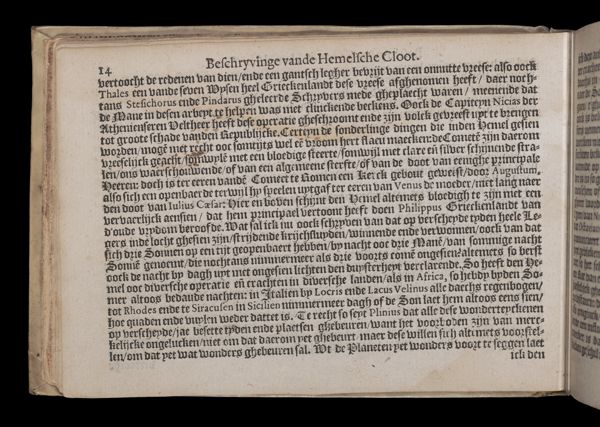 14
Beschryvinge vande Hemelsche Cloot.
vertoocht de redenen van dien/ende een gantsch legher bevrijt van een onnutte vreese: also oock
Thales een vande seven Wysen heel Grieckenlandt dese vreese afghenomen heeft / daer noch-
tans Stesichorus ende Pindarus gheleerde Schryvers mede gheplaecht waren / meenende dat
de Mane in desen arbeyt te helpen was met clinckende beckens. Oock de Capiteyn Nicias der
Athenienseren Veltheer heeft dese operatie gheschroomt ende zijn volck gevreest uyt te brengen
tot groote schade vanden Republijcke. Certeyn de sonderlinge dingen die inden Hemel gesien
worden/ mogē met recht oor somtijts wel eē vroom hert slaen maecken: de Cometē zijn daerom
vreeselijck geacht/ somwylē met een bloedige steerte/somwijl met clare eñ silver schijnende stra-
len/ons waerschouwende/of van een algemeene sterfte/of van de doot van eenighe principale
Heeren: doch is ter eeren vandē Comeet te Romen een Kerck gebout geweist/door Augustum,
also sich een openbaerde terwijl hy speelen uytgaf ter eeren van Venus de moeder/niet lang naer
den doot van Iulius Cæsar: Hier en boven schijnt den Hemel altemets bloedigh te zijn met een
vervaerlijck aensien / dat hem principael vertoont heeft doen Philippus Grieckenlandt van
d'oude vrydom beroofde. Wat sal ick im oock schryven van dat op verscheyde tyden heele Le-
gers inde locht ghesien zijn/strijdende krijchsluyden/winnende ende verwonnen/oock van dat
sich drie Sonnen op een tijt geopenbaert hebben/by nacht oor drie Manē/van sommige nacht
Sonnē genoemt/die nochtans nimmermeer als drie voorts comē ongesien? altemets so berst
oock de nacht by dagh uyt met ongesien lichten den duysterheyt verclarende. So heeft den He-
mel oor diversche operatie eñ crachten in diversche landen/als in Africa, so hebdy byden So-
mer altoos bedaude nachten: in Italien by Locris ende Lacus Velinus alle daechs regenbogen/
tot Rhodes ende te Siracusen in Sicilien nimmermeer dagh of de Son laet hem altoos eens sien/
hoe quaden ende vuylen weder dattet is. Te recht so seyt Plinius dat alle dese wonderteyckenen
op verscheyde/jae besette tyden ende plaetsen ghebeuren/want het voorboden zijn van merc-
kelijcke ongelucken/niet om dat daerom yet ghebeurt maer dese willen sich altemets voorstel-
len/om dat yet wat wonders ghebeuren sal. Wt de Planeten yet wonders voort te seggen laet
ick den